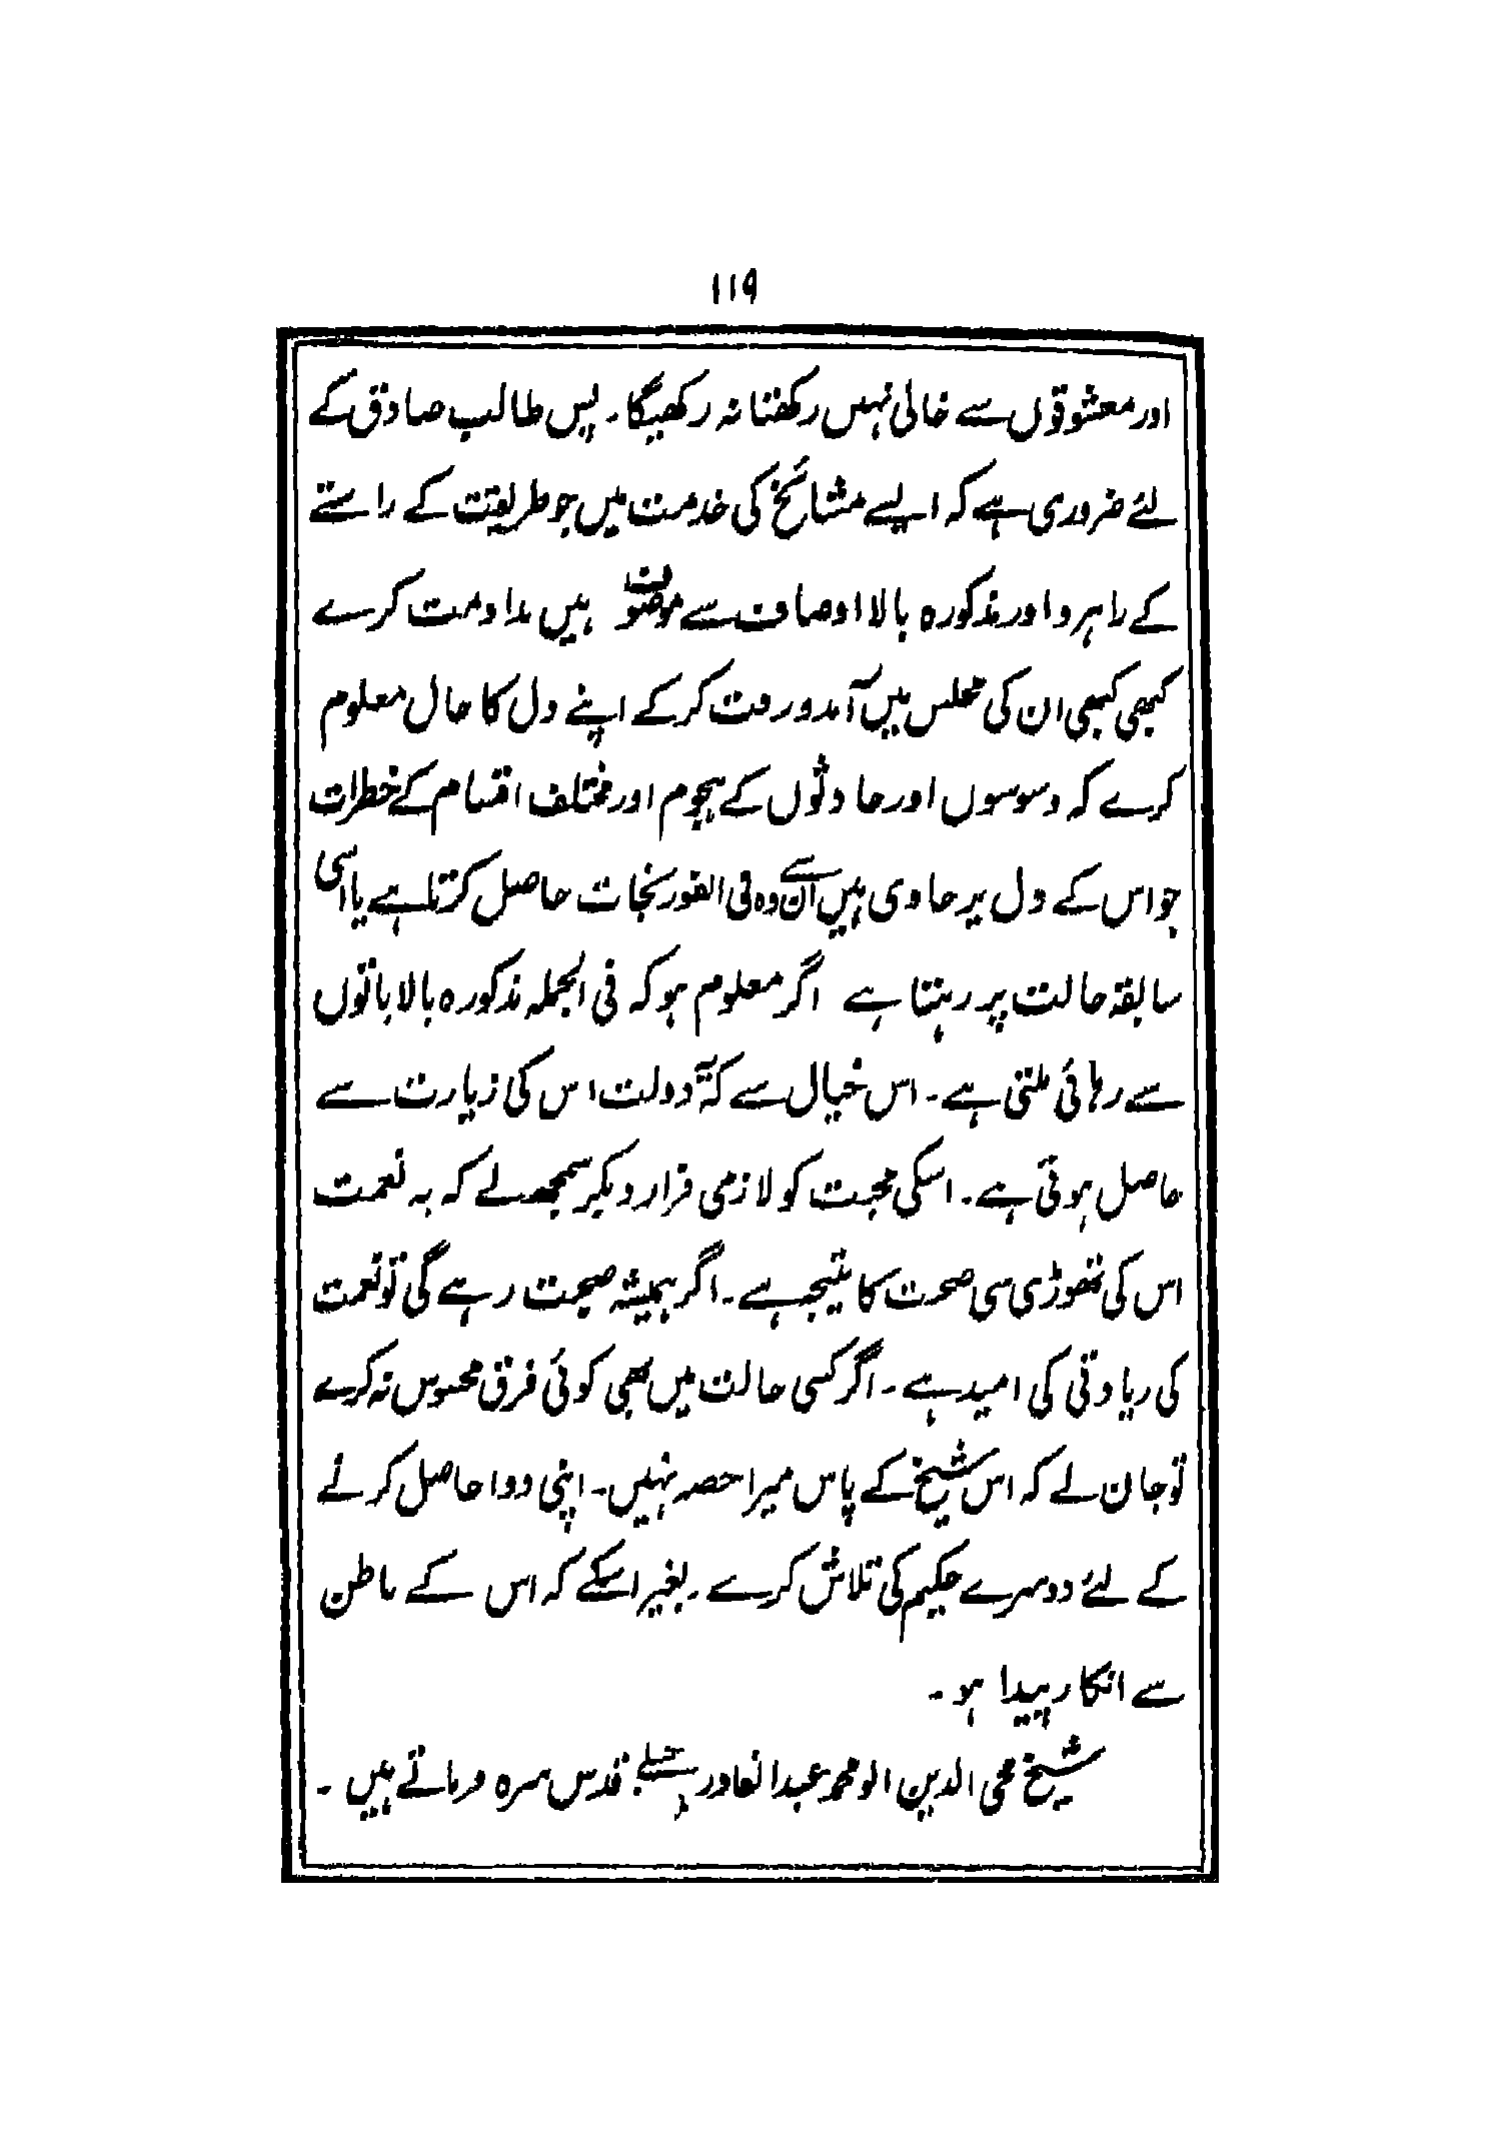 ۱۱۹
اور معشوقوں سے خالی نہیں رکھتا نہ رکھیگا۔ پس طالب صادق کے
لئے ضروری ہے کہ ایسے مشائخ کی خدمت میں جو طریقت کے راستے
کے راہرو اور مذکورہ بالا اوصاف سے موصوف ہیں مداومت کرے
کبھی کبھی ان کی مجلس میں آمدورفت کر کے اپنے دل کا حال معلوم
کرے کہ وسوسوں اور حادثوں کے ہجوم اور مختلف اقسام کے خطرات
جو اس کے دل پر حاوی ہیں ان سے وہ فی الفور نجات حاصل کرتا ہے یا اسی
سابقہ حالت پر رہتا ہے اگر معلوم ہو کہ فی الجملہ مذکورہ بالا باتوں
سے رہائی ملتی ہے۔ اس خیال سے کہ یہ دولت اس کی زیارت سے
حاصل ہوئی ہے۔ اسکی محبت کو لازمی قرار دیکر سمجھ لے کہ یہ نعمت
اس کی تھوڑی سی صحبت کا نتیجہ ہے۔ اگر ہمیشہ صحبت رہے گی تو نعمت
کی زیادتی کی امید ہے۔ اگر کسی حالت میں بھی کوئی فرق محسوس نہ کرے
تو جان لے کہ اس شیخ کے پاس میرا حصہ نہیں۔ اپنی دوا حاصل کرنے
کے لئے دوسرے حکیم کی تلاش کرے۔ بغیر اسکے کہ اس کے باطن
سے انکار پیدا ہو۔
شیخ محی الدین ابو محمد عبدالقادر جیلی قدس سرہ فرماتے ہیں۔